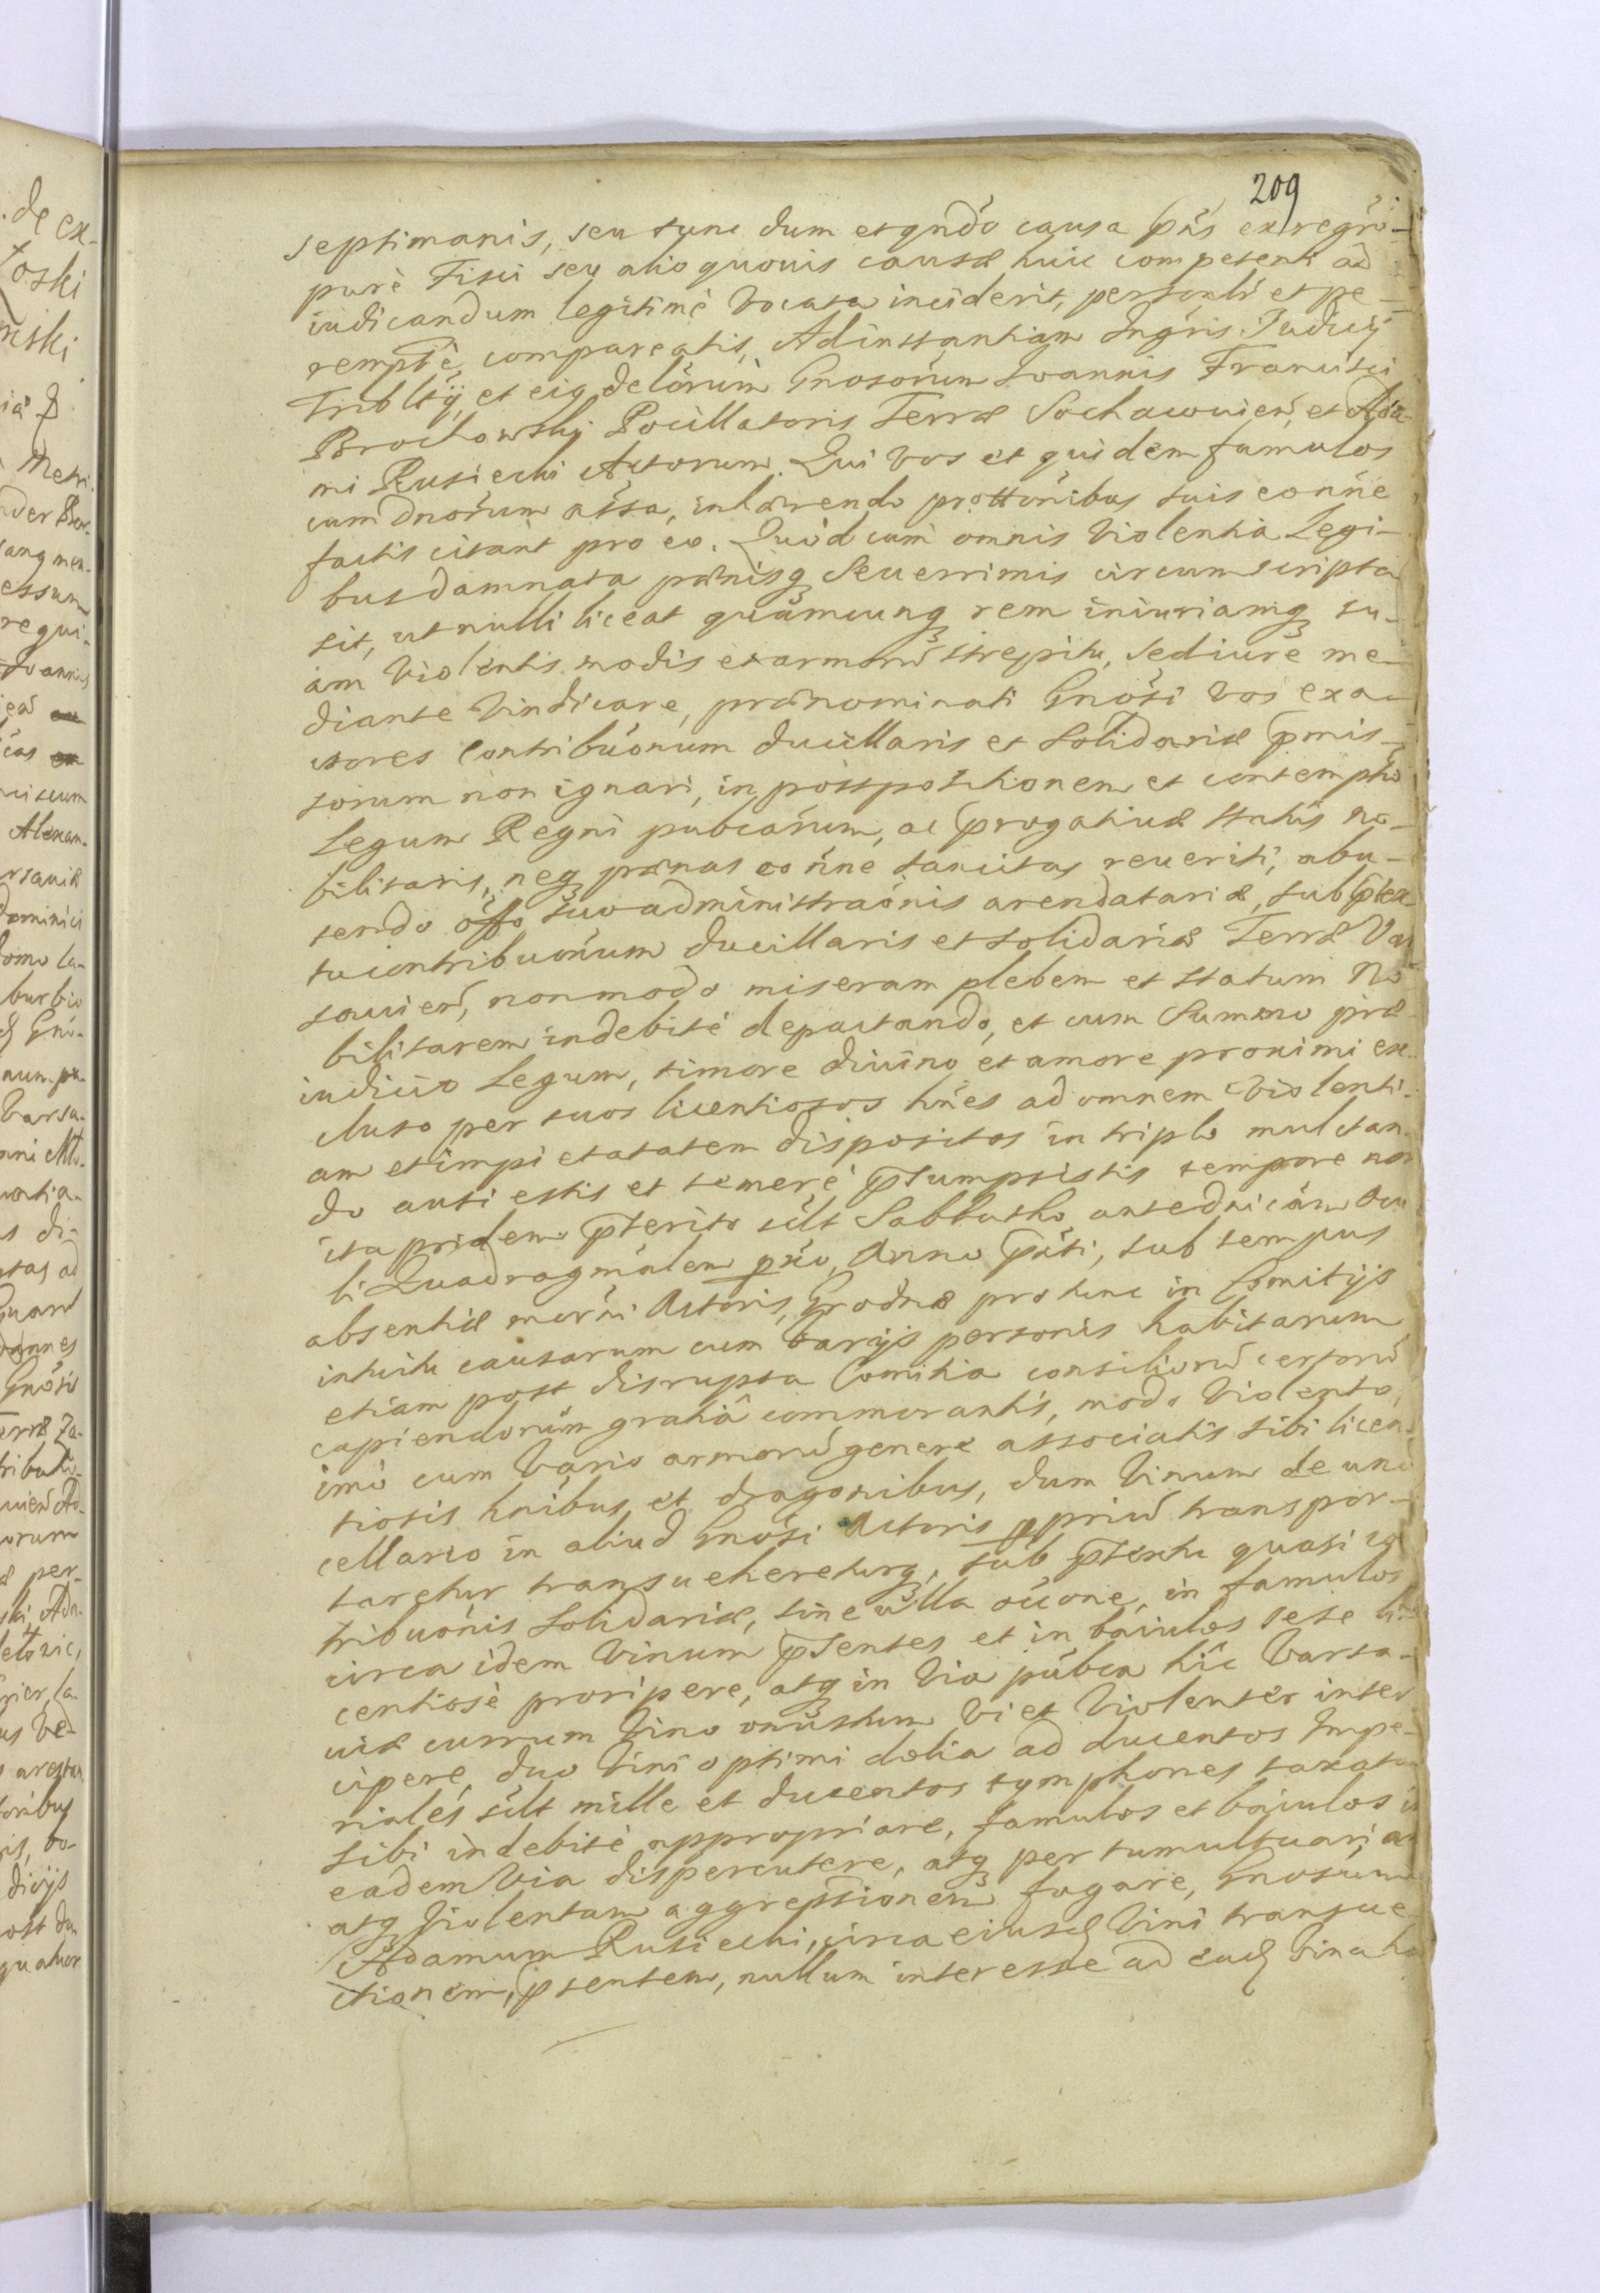 209
septimanis, seu tunc dum et qndo causa pñs ex regrõ
purè Fisci seu alio quouis causæ huic competenti ad
iudicandum legitimè vocata inciderit, personlr et pe-
remptè, compareatis, Ad instantiam Ingris. Judicij
Tribltij, et eig delõrum Gnosorum Joannis Francisci
Brochowskij Pocillatoris Terræ Sochaczouien, et Ada-
mi Rusiecki Actorum. Qui vos et quidem famulos
cum dnorum assa, inhærendo prottõnibus suis eo nñe
factis citant pro eo. Quòd cum omnis violentia Legi-
bus damnata pænisq seuerrimis circumscripta
sit, ut nulli liceat quamcunq rem iniuriamq su-
am violentis modis et armorũ strepitu, sed iure me-
diante vindicare, prænominati Gnosi vos exa-
ctores contribuõnum ducillaris et solidariæ pmis-
sorum non ignari, in postpositionem et contemptũ
Legum Regni pubcarum, ac progatiuæ status no-
bilitaris, neq pænas eo nñe sancitas reueriti, abu-
tendo offo suo administraõnis arendatariæ, sub ptex-
tu contribuõnum ducillaris et solidariæ Terræ Var-
sauien, non modo miseram plebem et statum No-
bilitarem indebitè depactando, et cum summo præ-
iudicio Legum, timore diuino et amore proximi ex-
cluso per suos licentiosos hñes ad omnem violenti-
am et impietatatem dispositos in triplo mulctan-
do ausi estis et temerè psumpsistis tempore non
ita pridem pterito sclt Sabbatho ante dnicam Ocu-
li Quadragmalem pxio, Anno pñti, sub tempus
absentiæ mocni Actoris, Grodnæ pro tunc in Comitijs
intuitu causarum cum varijs personis habitarum
etiam post disrupta Comitia consiliorũ certorũ
capiendorum gratiâ commorantis, modo violento,
imò cum vario armorũ genere associatis sibi licen-
tiosis hnibus et dragonibus, dum vinum de uno
cellario in aliud Gnosi Actoris ppriũ transpor-
taretur transueheretúrq, sub ptextu quasi con-
tribuõnis solidariæ, sine ulla occõne, in famulos
circa idem vinum psentes et in baiulos sese li-
centiosè proripere, atq in via pubca hic Varsa-
uiæ currum vino onustum vi et violenter inter-
cipere, duo vini optimi dolia ad ducentos Impe-
riales sclt mille et ducentos tymphones taxata
sibi indebitè appropriare, famulos et baiulos in
eadem via dispercutere, atq per tumultuariam
atq violentam aggressionem fugare, Gnosum
Adamum Rusiecki, circa eiusd vini transue-
ctionem, psentem, nullum interesse ad ead vina ha